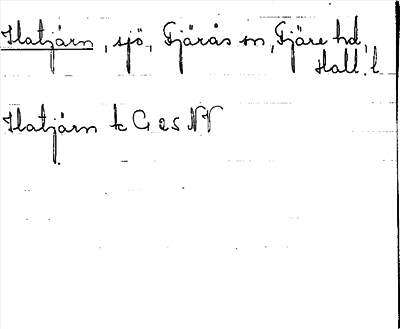 Hatjärn, sjö, Fjärås sn, Fjäre hd,
Hall. l.
Hatjärn tc G 25 NV